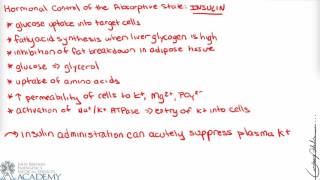 Hormonal Control of the Absorptive State: INSULIN
* glucose uptake into target cells
* fatty acid synthesis when liver glycogen is high
* inhibition of fat breakdown in adipose tissue
* glucose ⇒ glycerol
* uptake of amino acids
* ↑ permeability of cells to K+, Mg2+, PO43-
* activation of Na+/K+ ATPase ⇒ entry of K+ into cells
→ insulin administration can acutely suppress plasma K+
ACADEMY